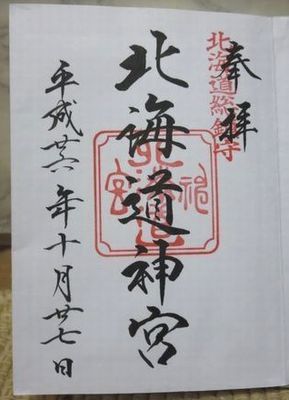 奉拝
北海道総鎮守
北海道神宮
平成廿六年十月廿七日